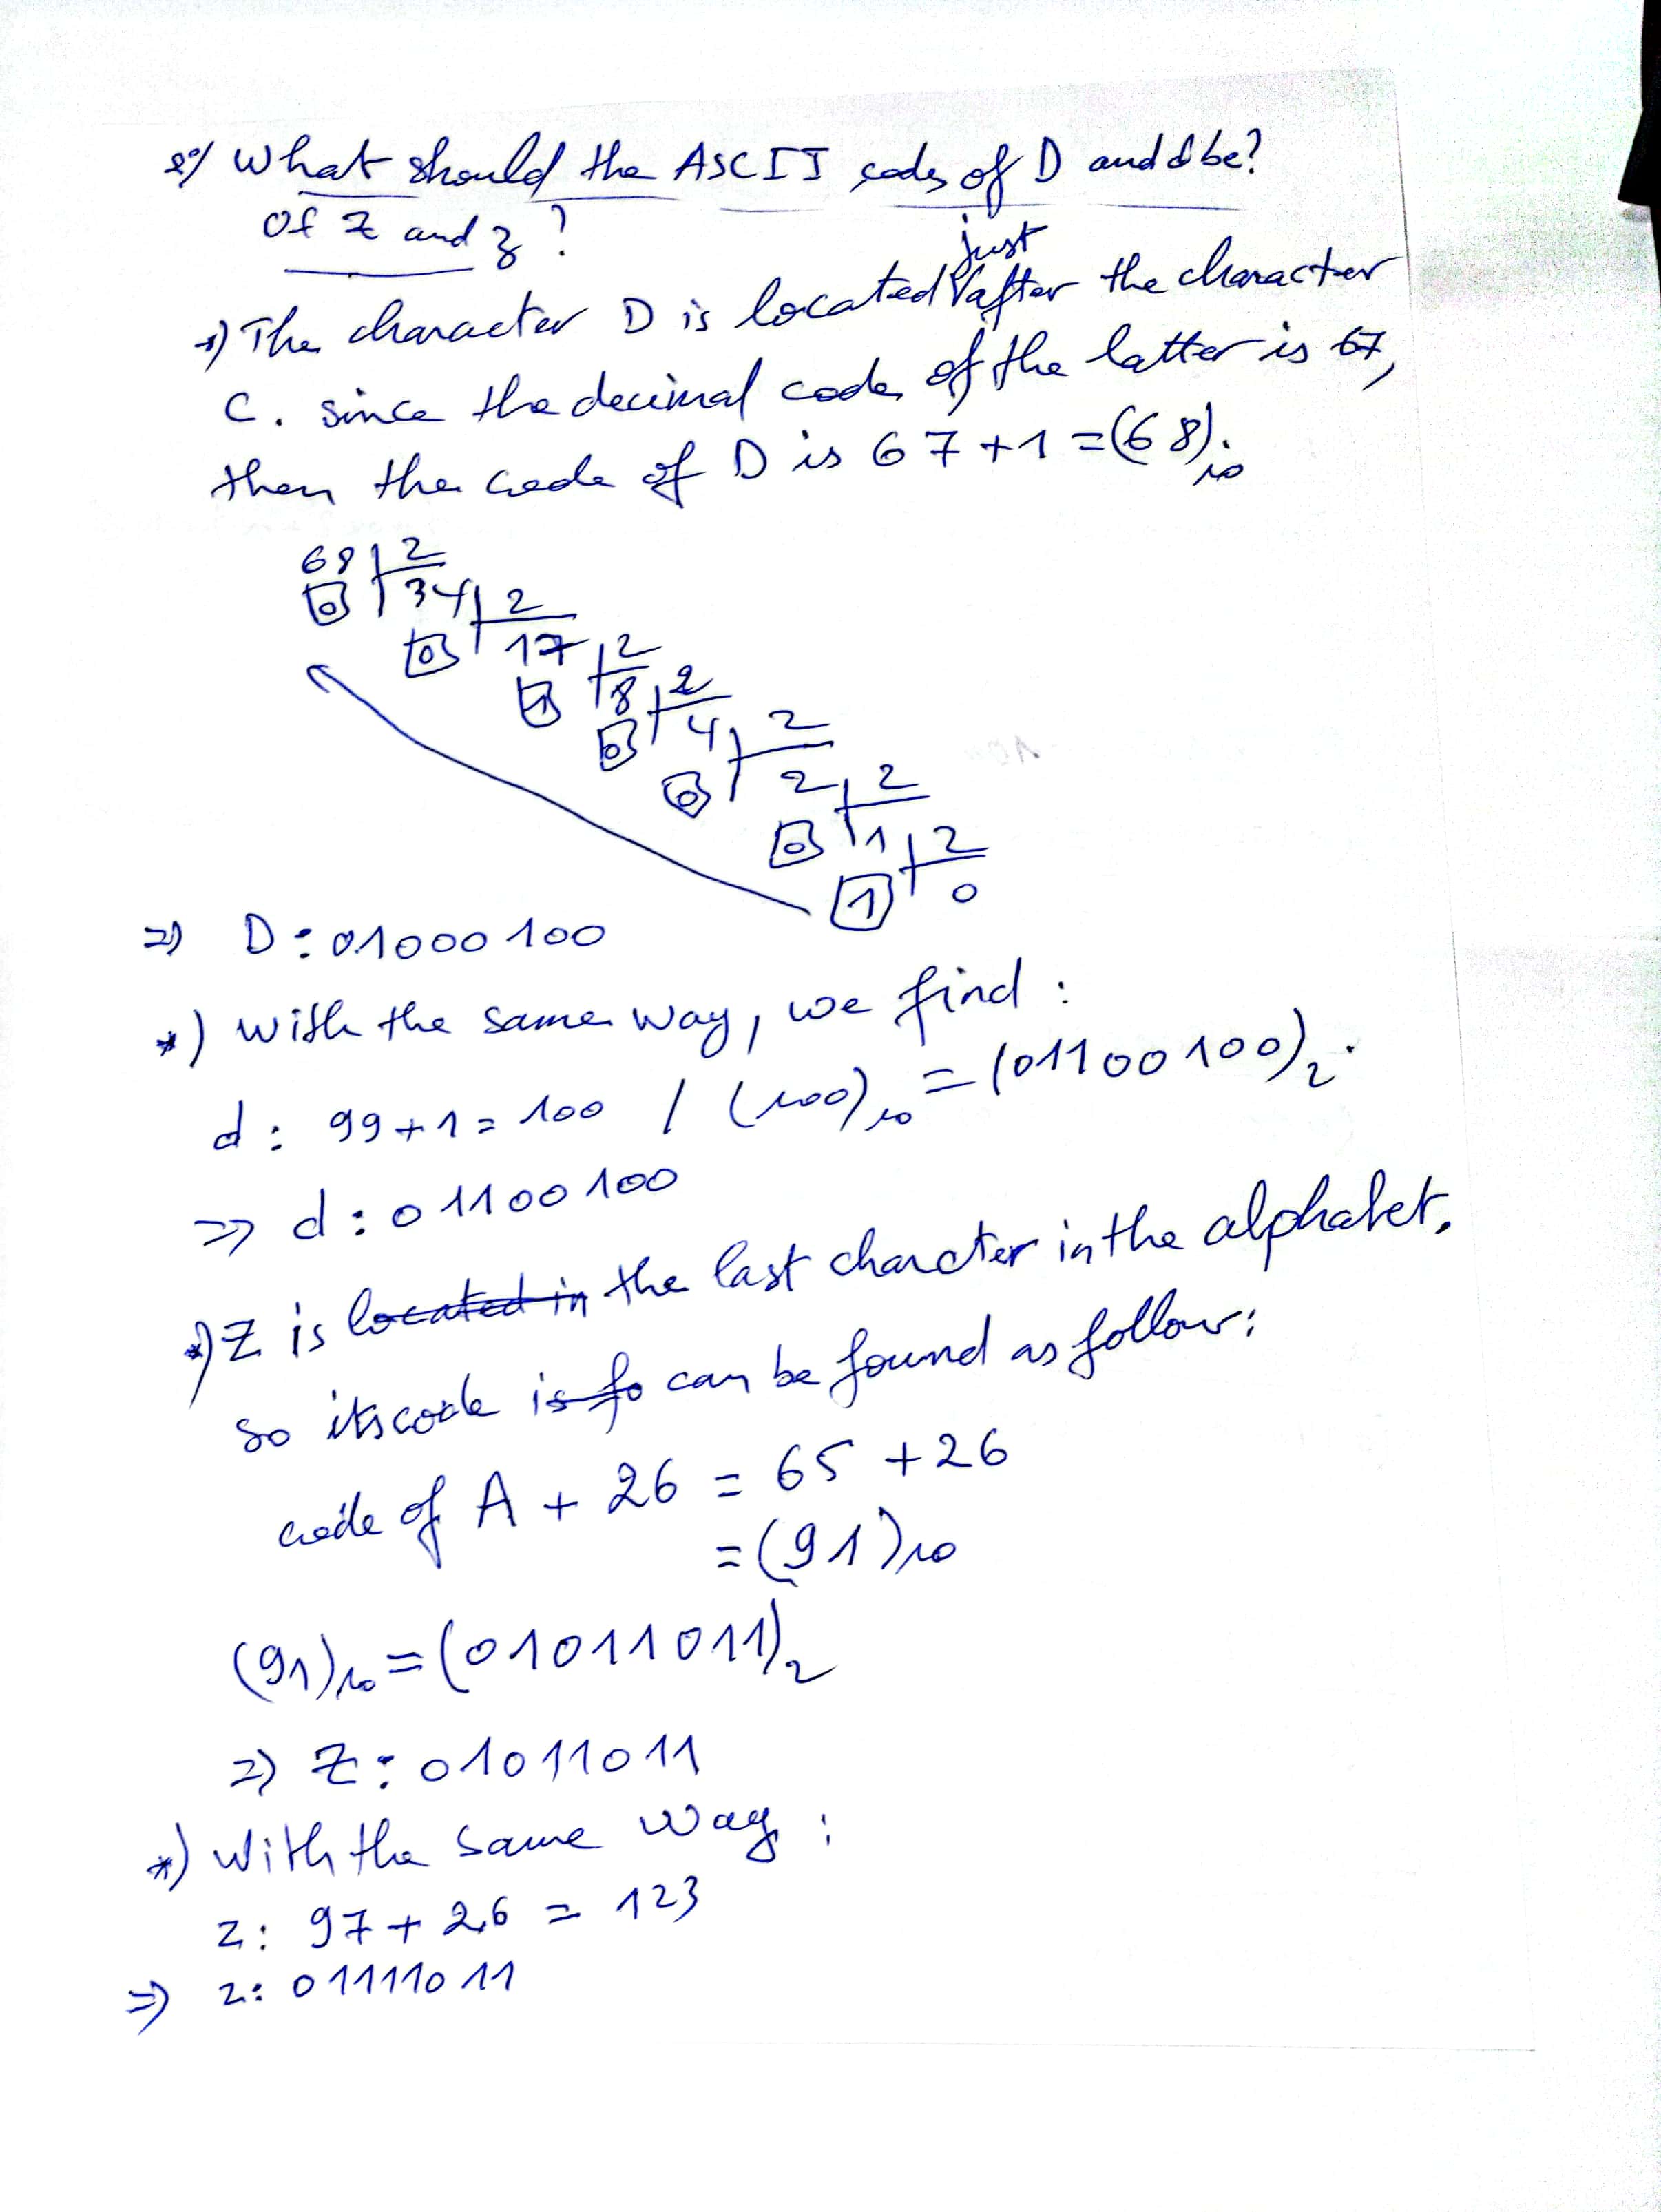 2°/ What should the ASCII codes of D and d be?
Of Z and z?
just
*) The character D is located after the character
C. since the decimal code of the latter is 67,
then the code of D is 67+1=(68)₁₀.
68 2
0 34 2
0 17 2
1 8 2
0 4 2
0 2 2
0 1 2
1 0
=> D: 01000100
*) with the same way, we find:
d: 99+1=100 / (100)₁₀=(01100100)₂.
=> d: 01100100
*) Z is located in the last charcter in the alphabet.
so its code is fo can be found as follow:
code of A + 26 = 65 + 26
= (91)₁₀
(91)₁₀=(01011011)₂
=> Z: 01011011
*) With the same way:
z: 97+26 = 123
=> z: 01111011